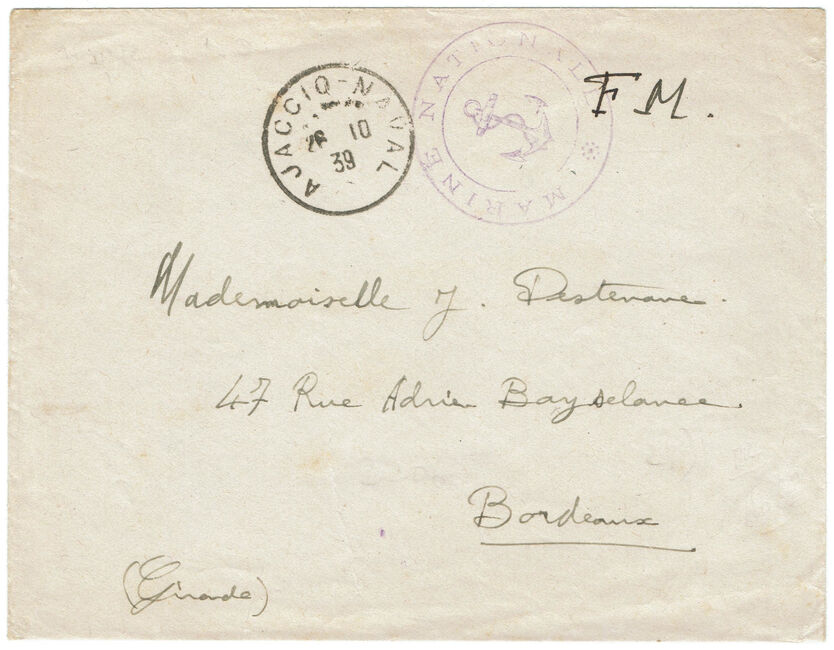 AJACCIO-NAVAL
26 10
39
MARINE NATIONALE *
F M.
Mademoiselle J. Destenave.
47 Rue Adrien Bayselance.
Bordeaux
(Gironde)